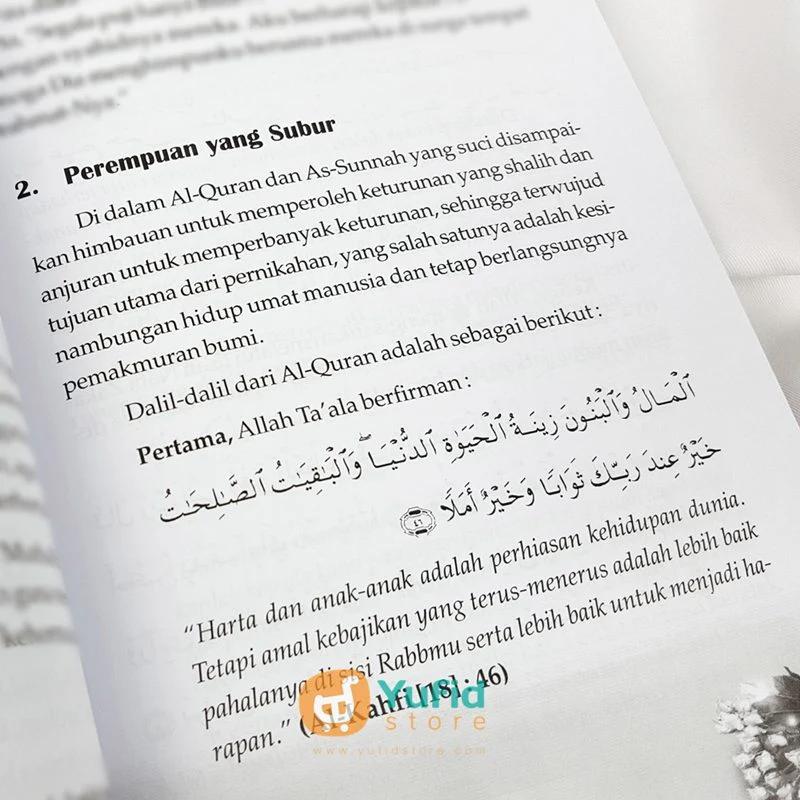 dan
in. "Segala puji hanya
dengan syahidnya mereka. Aku berharap kepada
moga Dia menghimpunku bersama mereka di surga tempat
rahmat-Nya."
2. Perempuan yang Subur
Di dalam Al-Quran dan As-Sunnah yang suci disampai-
kan himbauan untuk memperoleh keturunan yang shalih dan
anjuran untuk memperbanyak keturunan, sehingga terwujud
tujuan utama dari pernikahan, yang salah satunya adalah kesi-
nambungan hidup umat manusia dan tetap berlangsungnya
pemakmuran bumi.
Dalil-dalil dari Al-Quran adalah sebagai berikut :
Pertama, Allah Ta'ala berfirman :
ٱلْمَالُ وَٱلْبَنُونَ زِينَةُ ٱلْحَيَوٰةِ ٱلدُّنْيَا ۖ وَٱلْبَٰقِيَٰتُ ٱلصَّٰلِحَٰتُ
خَيْرٌ عِندَ رَبِّكَ ثَوَابًا وَخَيْرٌ أَمَلًا ٤٦
"Harta dan anak-anak adalah perhiasan kehidupan dunia.
Tetapi amal kebajikan yang terus-menerus adalah lebih baik
pahalanya di sisi Rabbmu serta lebih baik untuk menjadi ha-
rapan." (Al-Kahfi [18] : 46)
Yufid
store
www.yufidstore.com